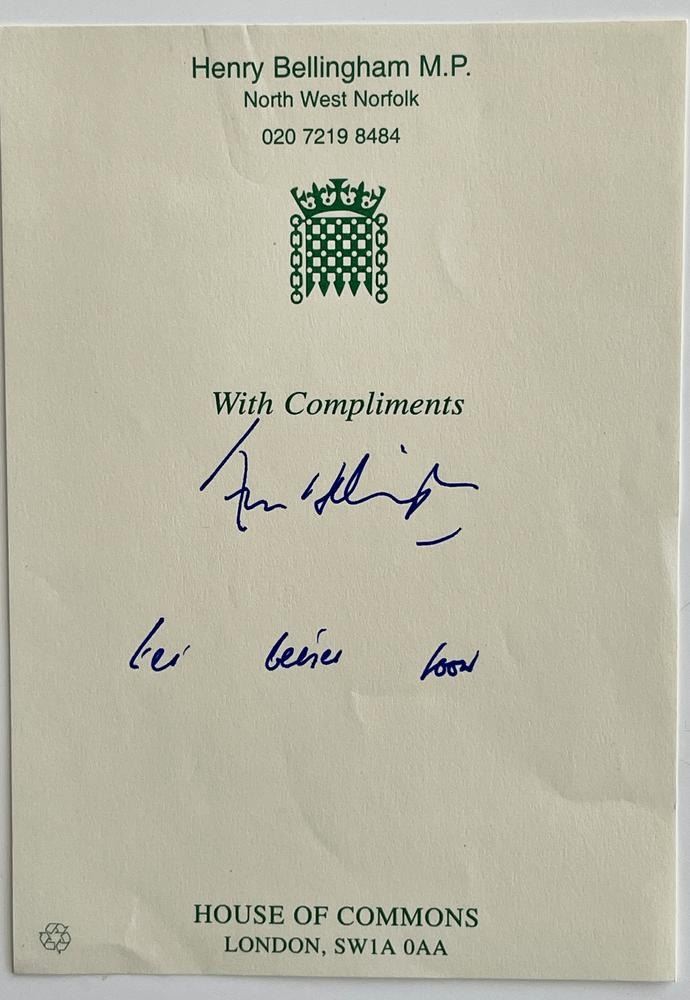 Henry Bellingham M.P.
North West Norfolk
020 7219 8484
With Compliments
HOUSE OF COMMONS
LONDON, SW1A 0AA